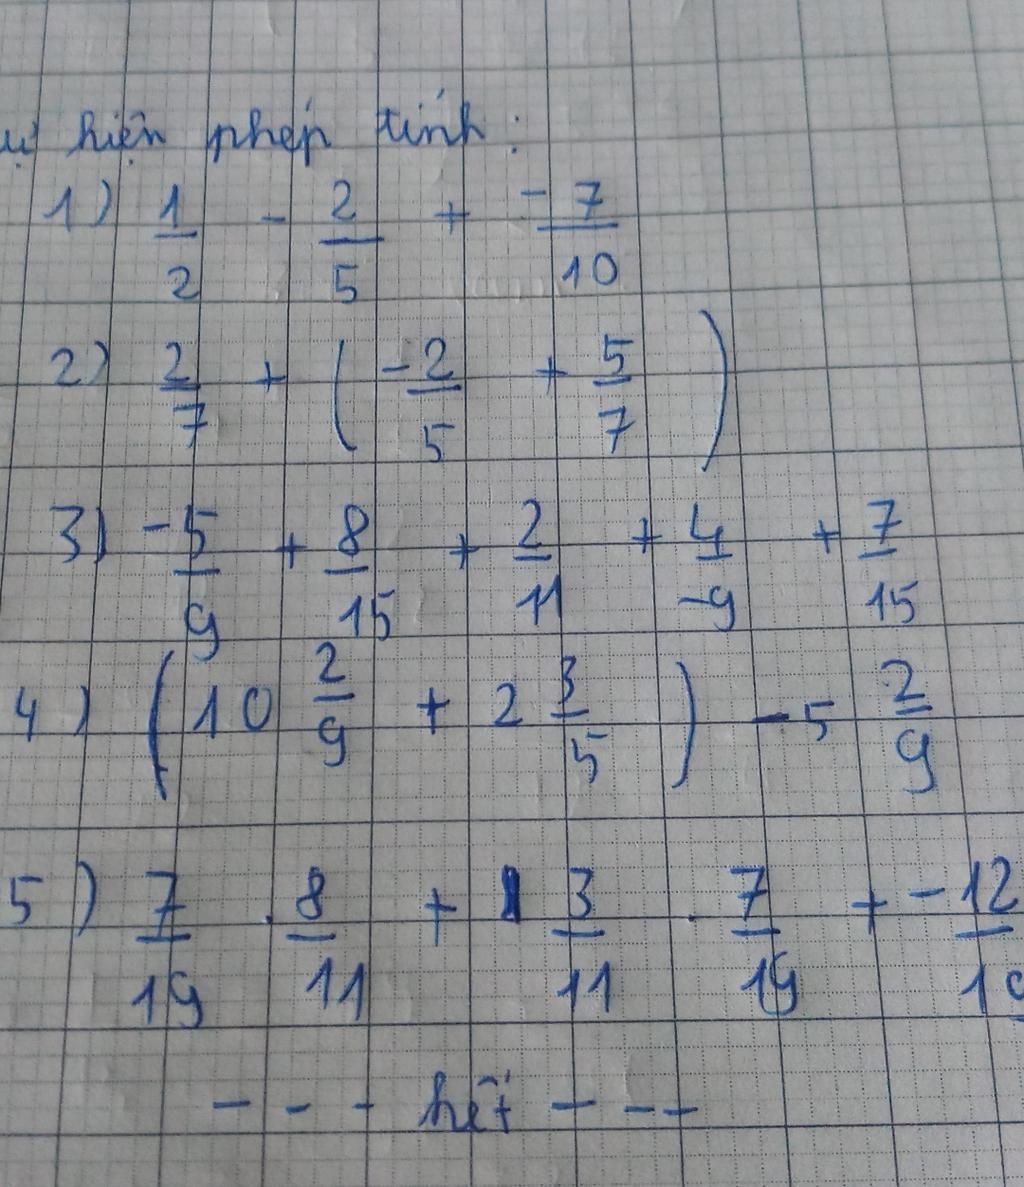 hiện phép tính:
1) 1/2 - 2/5 + -7/10
2) 2/7 + (-2/5 + 5/7)
3) -5/9 + 8/15 + 2/11 + 4/-9 + 7/15
4) (10 2/9 + 2 3/5) - 5 2/9
5) 7/19 . 8/11 + 3/11 . 7/19 + -12/19
- - - hết - - -